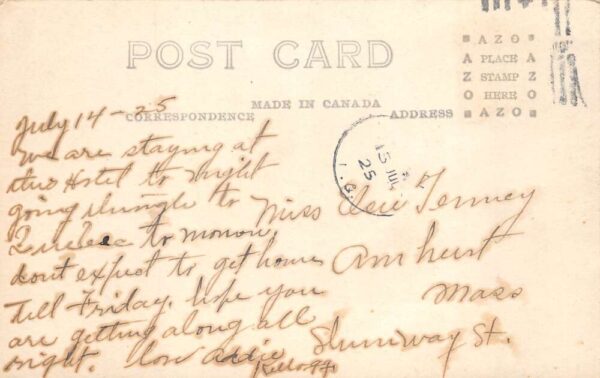 POST CARD
AZO
A PLACE A
Z STAMP Z
O HERE O
AZO
MADE IN CANADA
CORRESPONDENCE
ADDRESS
July 14-25
We are staying at
this Hotel to night
going to
Quebec to morrow.
dont expect to get home
till Friday. hope you
are getting along all
right. love Addie
Kellogg
15 JUL
25
Miss Tenney
Amherst
Mass
Shumway St.